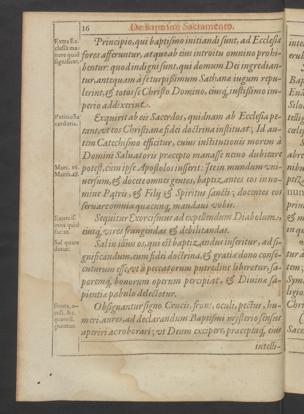 16
De Baptismi Sacramento.
Extra Ecclesiæ
manere quid
significet.
Principio, qui baptismo initiandi sunt, ad Ecclesiæ
fores afferuntur, atque ab eius introitu omnino prohi-
bentur: quod indigni sint, qui domum Dei ingredian-
tur, antequam à se turpissimum Sathanæ iugum repu-
lerint, & totos se Christo Domino, eiusq, iustissimo im-
perio addixerint.
Petitio Sa
cerdotis.
Exquirit ab eis Sacerdos, quidnam ab Ecclesia pe-
tant, ut eos Christianæ fidei doctrina instituat; Id au-
tem Catechismo efficitur, cuius institutionis morem à
Domini Saluatoris præcepto manasse nemo dubitare
potest, cum ipse Apostolis iusserit: Ite in mundum vni-
uersum, & docete omnes gentes, baptizantes eos in no-
mine Patris, & Filij & Spiritus sancti; docentes eos
seruare omnia quæcunq, mandaui vobis.
Marc. 16.
Matth. 28.
Exorcismi quid
Sequitur Exorcismus ad expellendum Diabolum,
eiusq, vires frangendas & debilitandas.
Sal quare
Sal in illius os, qui est baptizandus inseritur, ad si-
gnificandum, eum fidei doctrina, & gratiæ dono conse-
cuturum esse, vt à peccatorum putredine liberetur, sa-
poremq, bonorum operum percipiat, & Diuinæ sa-
pientiæ pabulo delectetur.
Obsignantur signo Crucis, frons, oculi, pectus, hu-
meri, aures, ad declarandum Baptismi mysterio sensus
aperiri ac roborari, vt Deum excipere, præceptaq, eius
intelli-